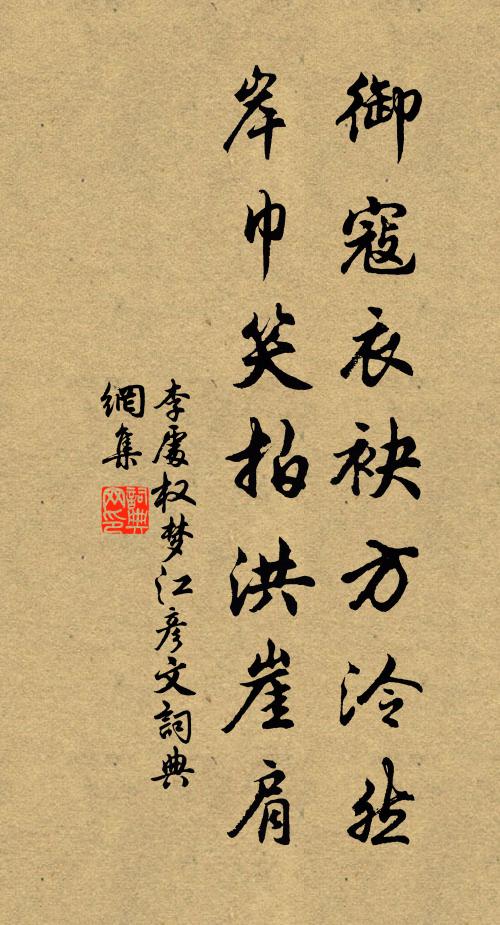 御寇衣袂方泠然
岸巾笑拍洪崖肩
李處权梦江彦文詞典
網集
詞典網印